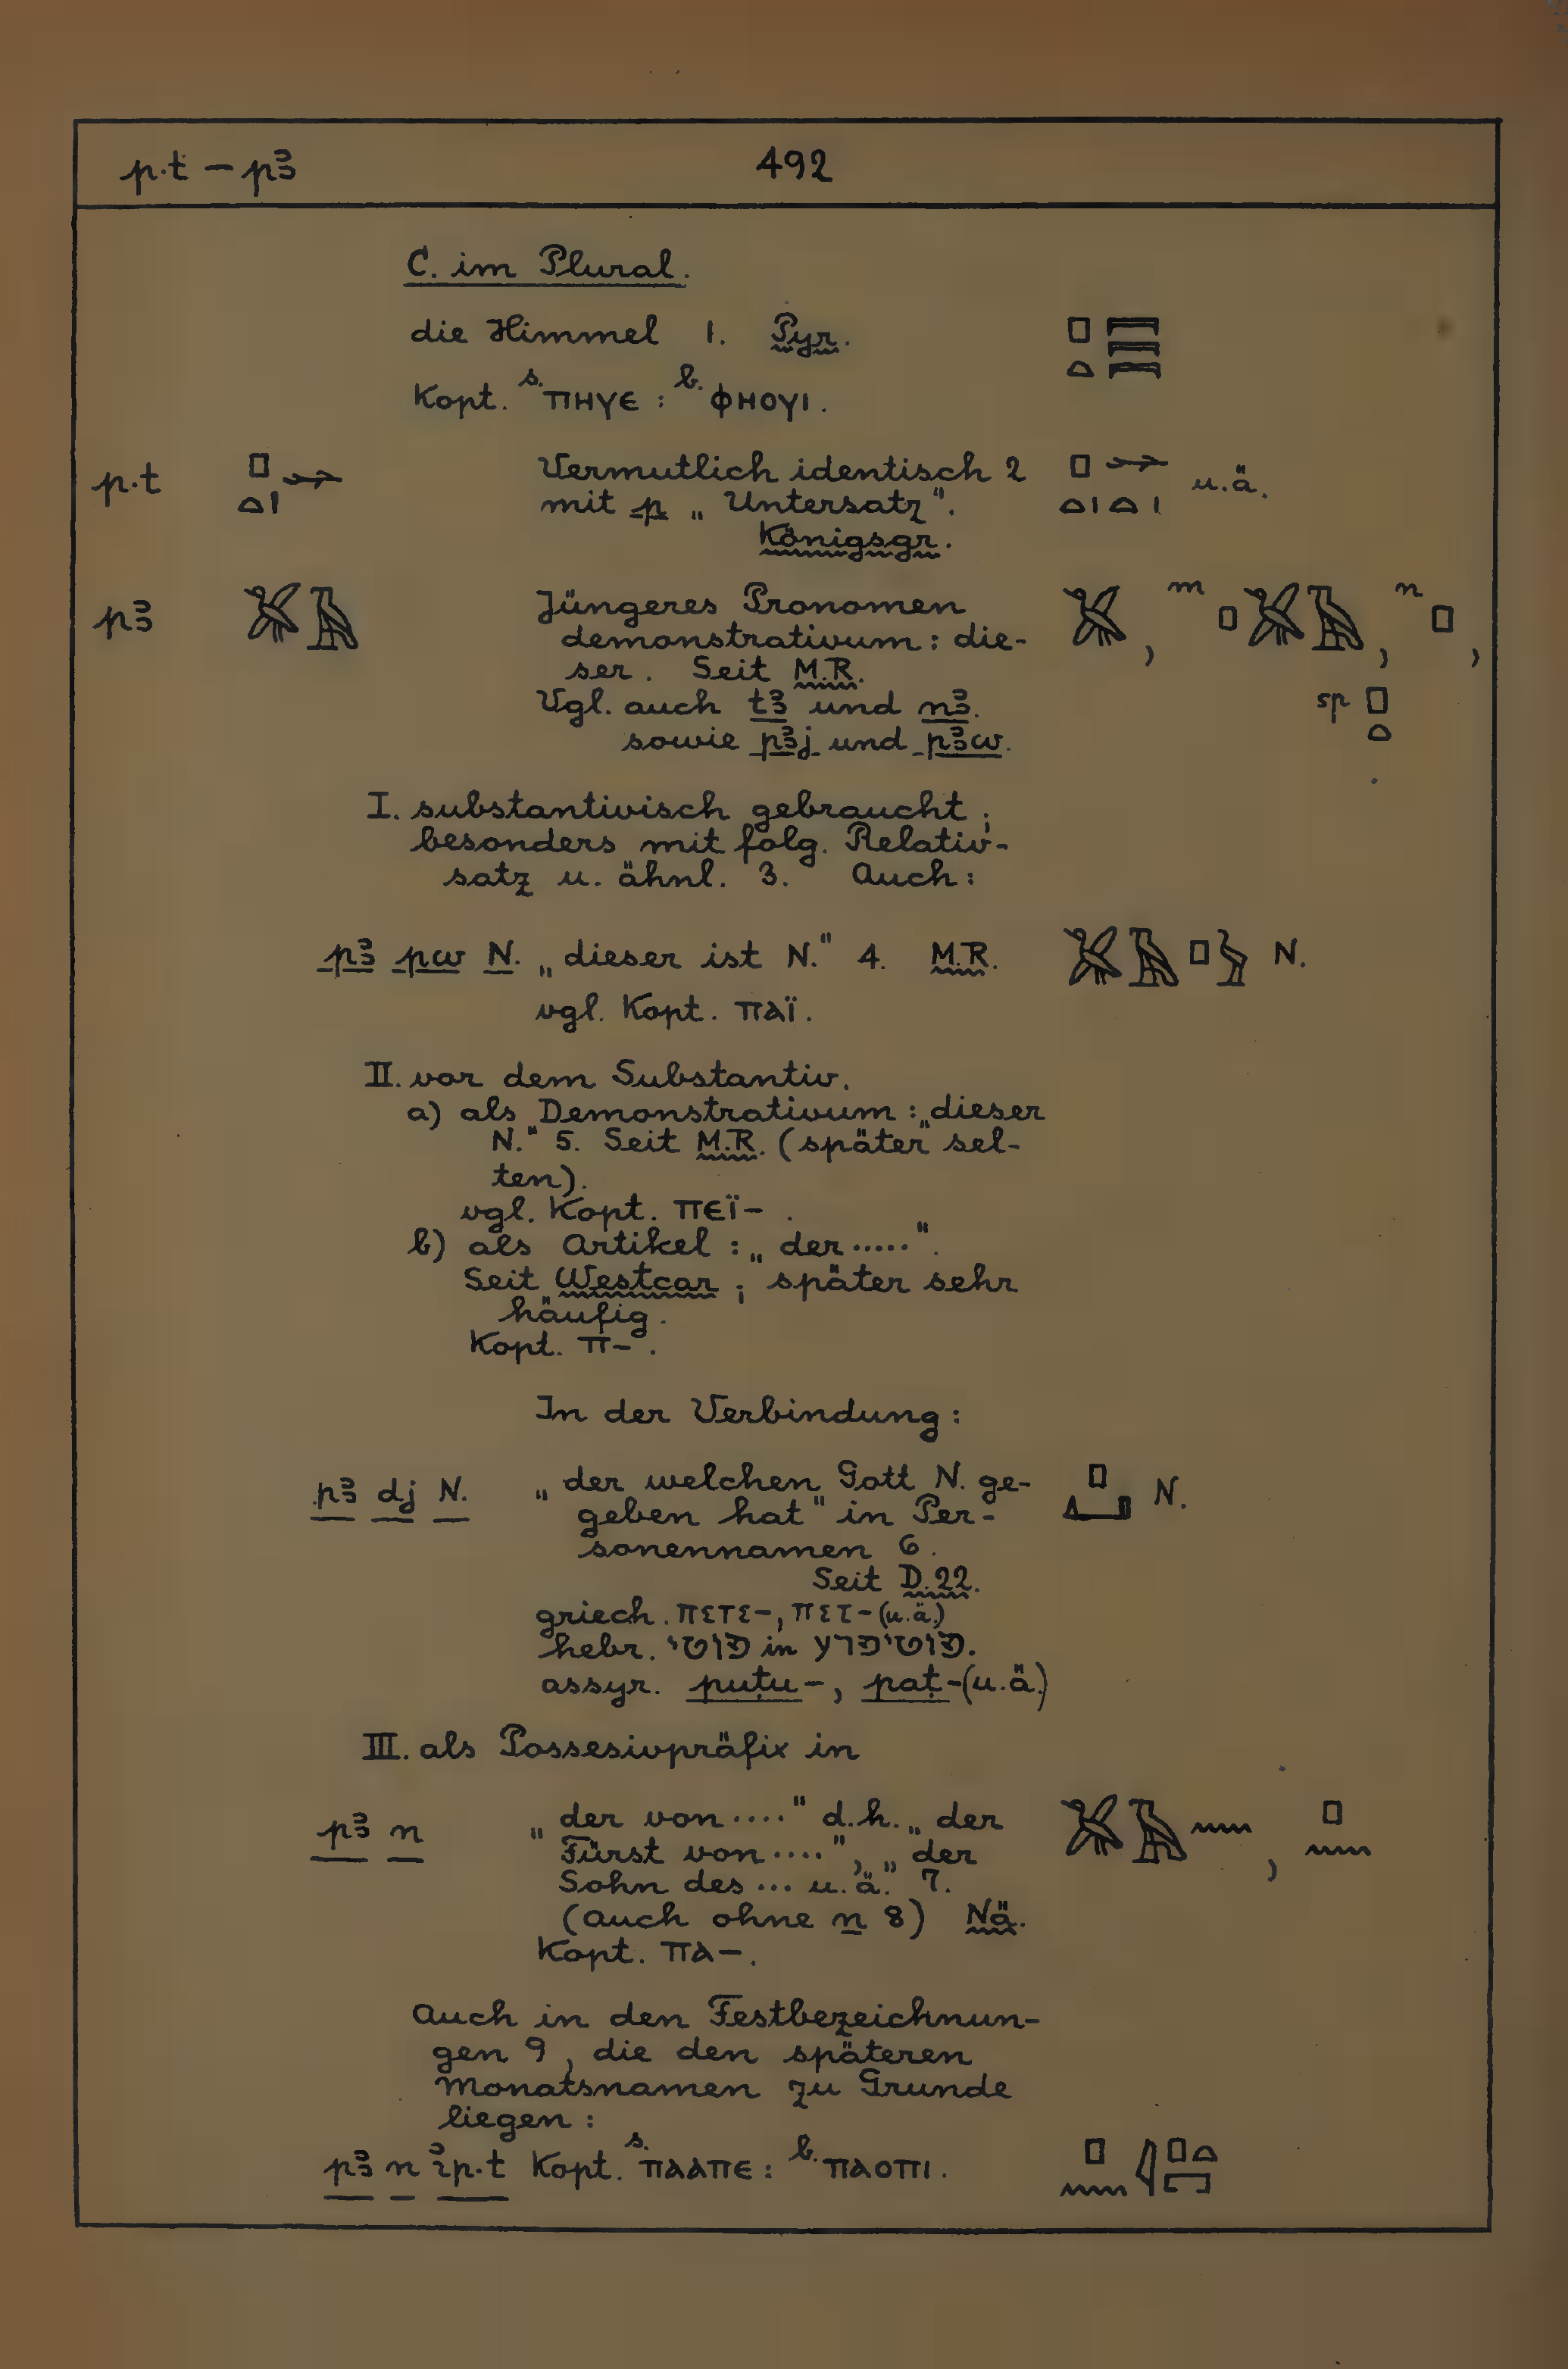 p.t – pꜣ 492
C. im Plural.
die Himmel 1. Pyr. 𓊪𓏏𓇯𓇯𓇯
Kopt. s. ⲡⲏⲩⲉ : b. ⲫⲏⲟⲩⲓ.
p.t 𓊪𓏏𓏤 Vermutlich identisch 2 𓊪𓏏𓏤𓏏𓏤 u.ä.
mit p „Untersatz".
Königsgr.
pꜣ 𓅮𓄿 Jüngeres Pronomen 𓅮, m 𓊪𓅮𓄿, n 𓊪,
demonstrativum: die-
ser. Seit M.R. sp 𓊪𓏏
Vgl. auch tꜣ und nꜣ.
sowie pꜣj und pꜣw.
I. substantivisch gebraucht;
besonders mit folg. Relativ-
satz u. ähnl. 3. Auch:
pꜣ pw N. „dieser ist N." 4. M.R. 𓅮𓄿𓊪𓅱 N.
vgl. Kopt. ⲡⲁⲓ̈.
II. vor dem Substantiv.
a) als Demonstrativum: „dieser
N." 5. Seit M.R. (später sel-
ten).
vgl. Kopt. ⲡⲉⲓ̈- .
b) als Artikel: „der .....".
Seit Westcar; später sehr
häufig.
Kopt. ⲡ- .
In der Verbindung:
pꜣ dj N. „der welchen Gott N. ge- 𓊪𓂞 N.
geben hat" in Per-
sonennamen 6.
Seit D.22.
griech. πετε-, πετ- (u.ä.)
hebr. פוטי in פוטיפרע.
assyr. puṭu-, paṭ- (u.ä.)
III. als Possesivpräfix in
pꜣ n „der von ...." d.h. „der 𓅮𓄿𓈖, 𓊪𓈖
Fürst von ....", „der
Sohn des ... u.ä." 7.
(auch ohne n 8) Nä.
Kopt. ⲡⲁ-.
Auch in den Festbezeichnun-
gen 9, die den späteren
Monatsnamen zu Grunde
liegen:
pꜣ n ip.t Kopt. s. ⲡⲁⲁⲡⲉ : b. ⲡⲁⲟⲡⲓ. 𓊪𓈖𓇋𓊪𓏏𓉐